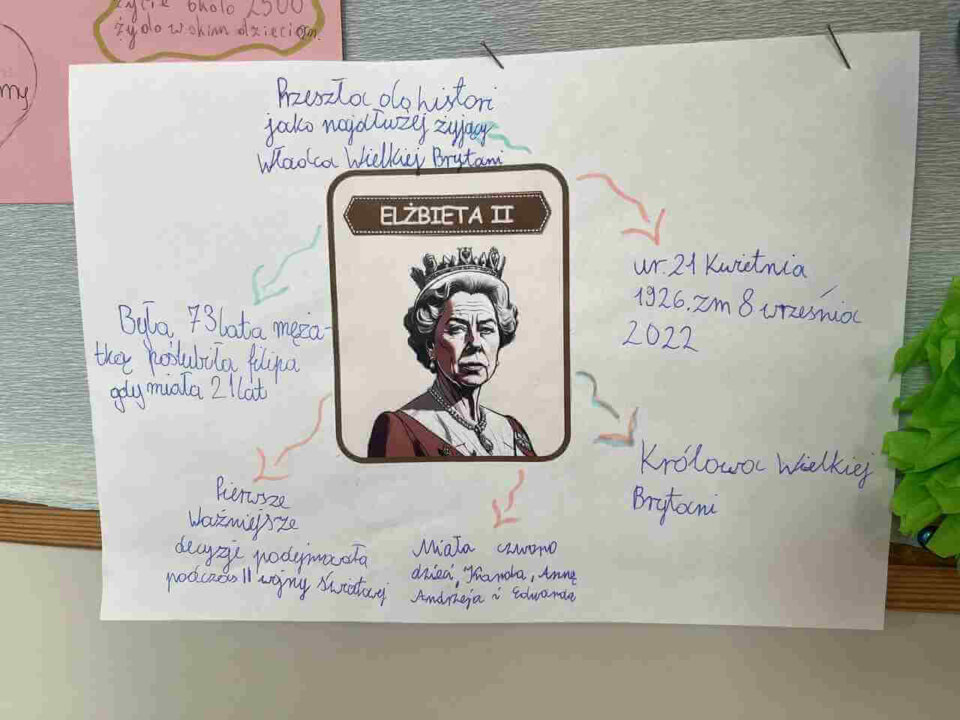 życie około 2500
żydowskim dzieciom.
my
Przeszła do histori
jako najdłużej żyjący
Władca Wielkiej Brytani
ELŻBIETA II
ur. 21 Kwietnia
1926. zm 8 września
2022
Była 73 lata męża-
tką poślubiła filipa
gdy miała 21 lat
Królowa Wielkiej
Brytani
Pierwsze
Ważniejsze
decyzje podejmowała
podczas II wojny Światowej
Miała czworo
dzieci, Karola, Annę
Andrzeja i Edwarda